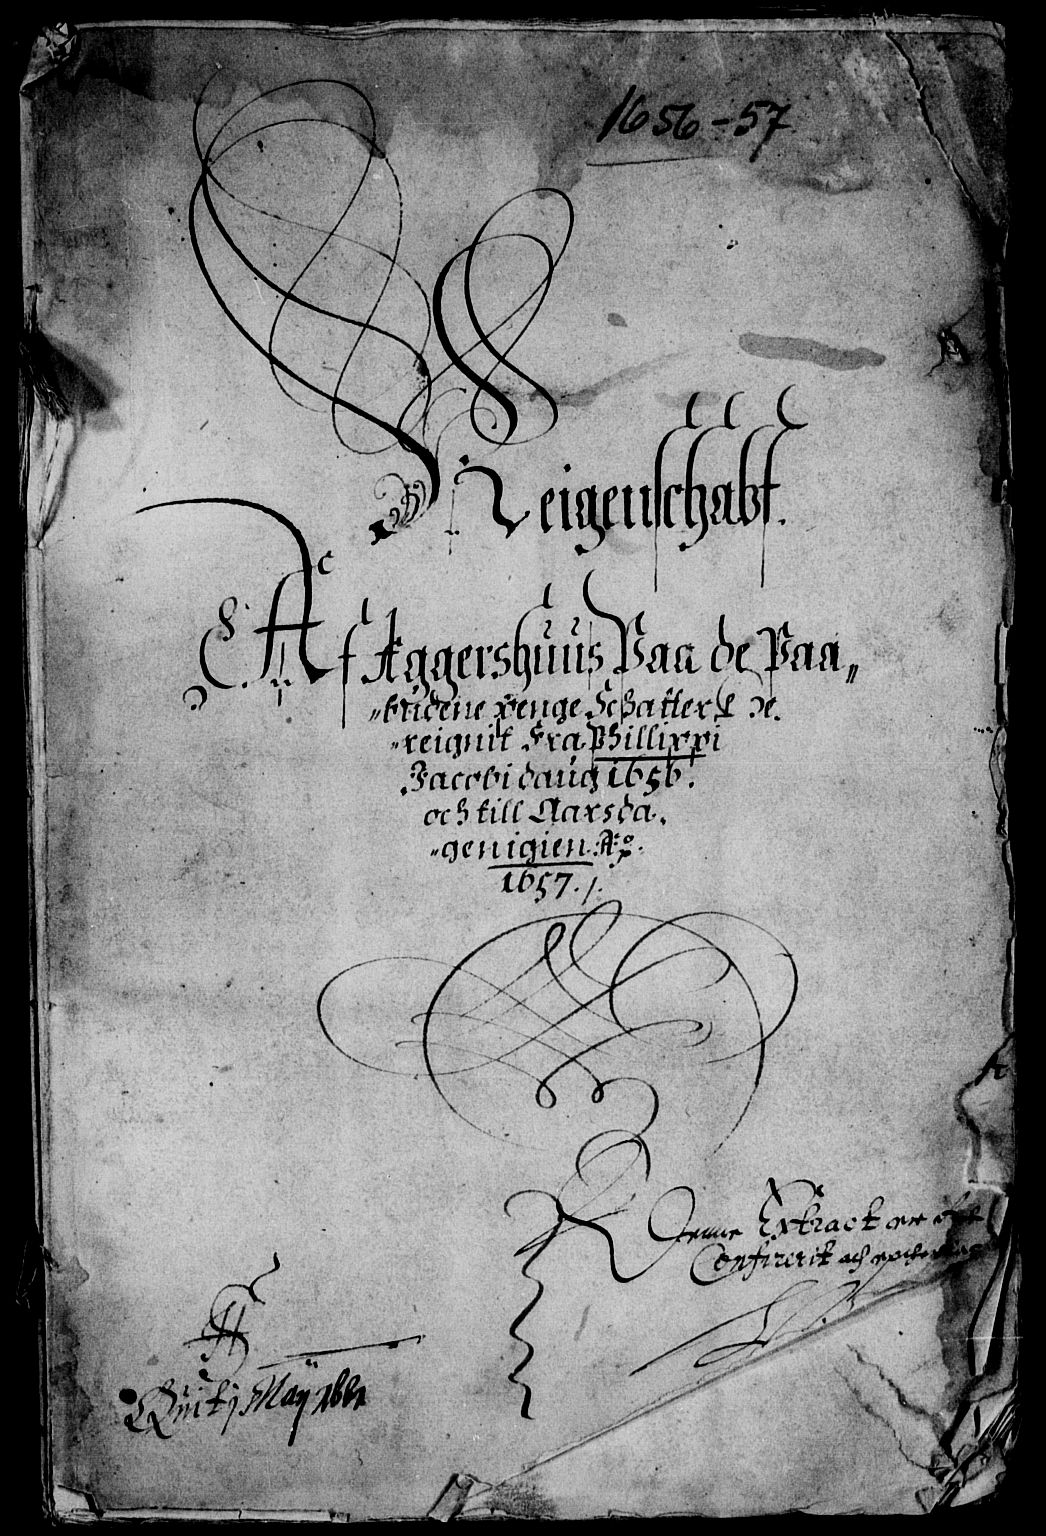 1656-57
Reigenschabt.
Af Aggershuus Paa de Paa„
„budene penge Schatter de.
„reignit Fra Phillippi
Jacobi daug 1656.
och till Aarsda.
„genigien A͞o.
1657. /.
Denne Extract er
Confirerit och
A
Qviit j May 1661